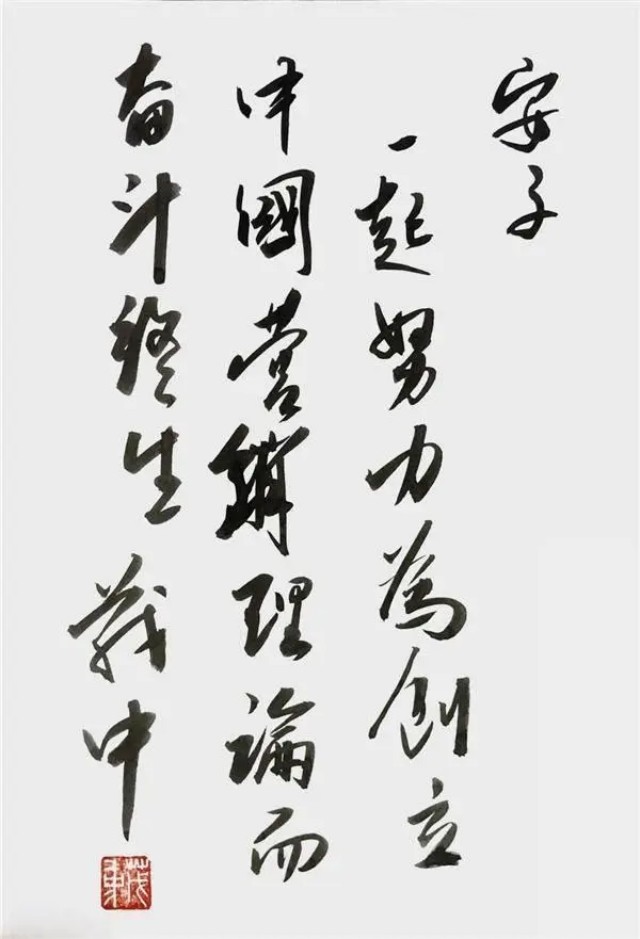 安子
一起努力為創立
中國營銷理論而
奋斗終生 茂中
茂東